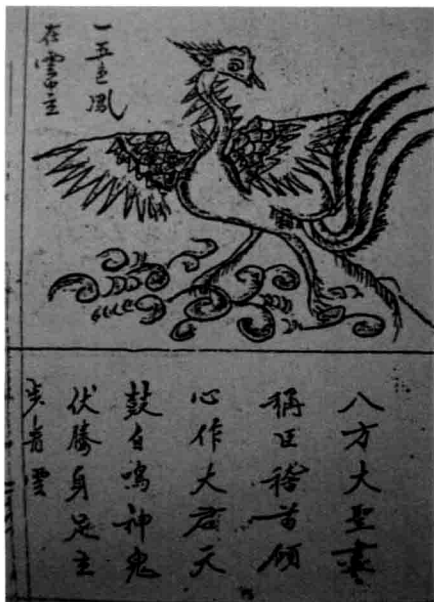 一五色鳳
在雲中主
八方大聖
稱臣稽首
心作大君天
鼓自鳴神鬼
伏勝身足主
步青雲